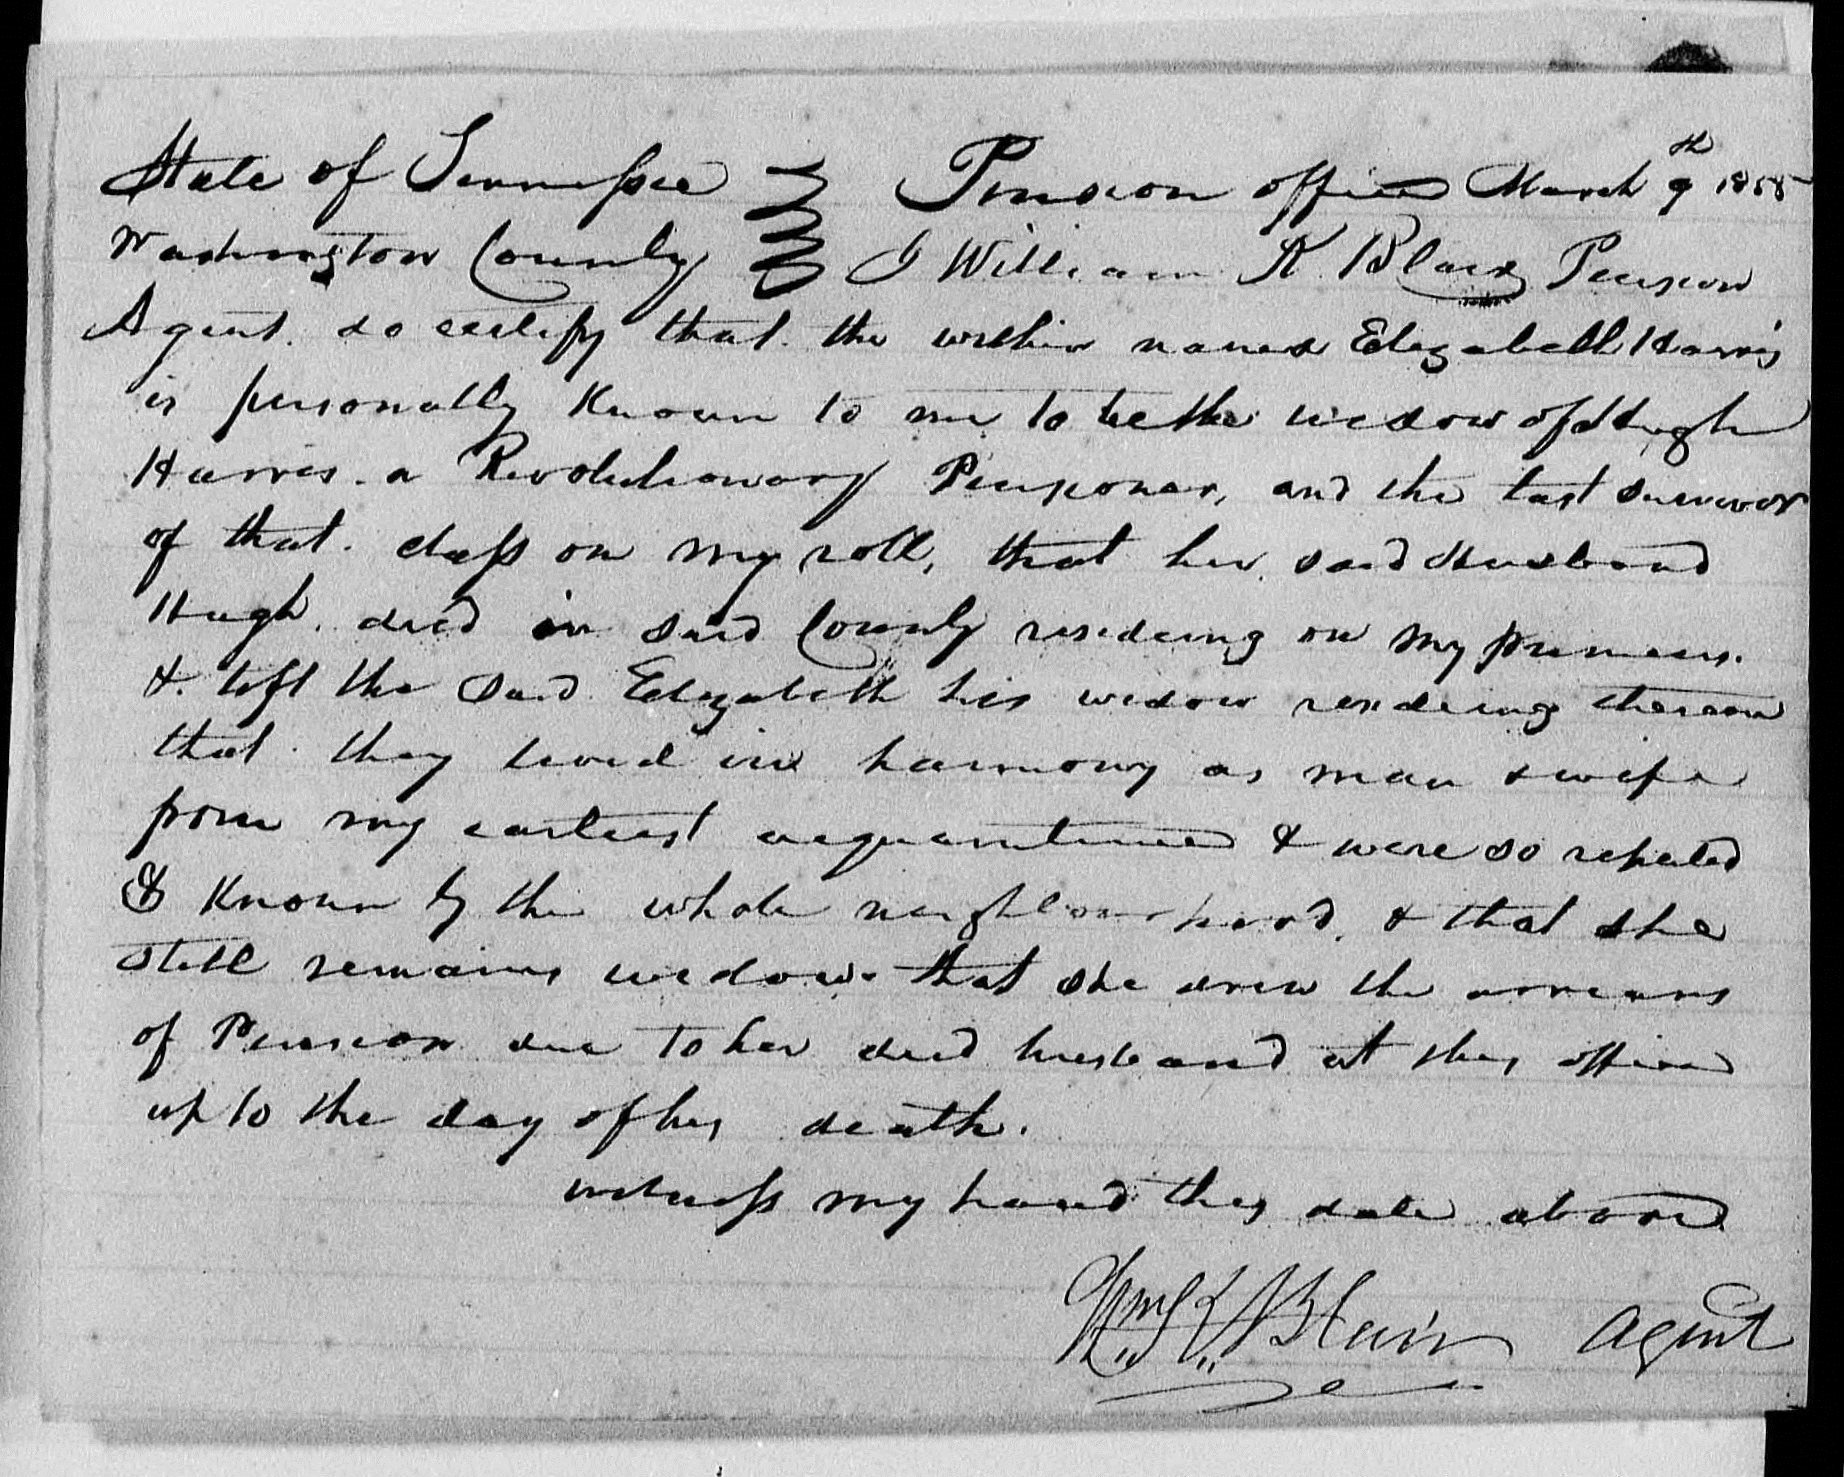 State of Tennessee Pension office March 9th 1855
Washington County I William K. Blair Pension
Agent. do certify that. the within named Elizabeth Harris
is personally Known to me to be the widow of Hugh
Harris. a Revolutionary Pensioner, and the last survivor
of that. class on my roll, that her. said Husband
Hugh. died in said County residing on my premises.
&. left the said Elizabeth his widow residing thereon
that they lived in harmony as man & wife
from my earliest acquaintance & were so reputed
& Known by the whole neighbourhood. & that she
still remains widow. that she drew the arrears
of Pension due to her decd husband at this office
up to the day of his death.
witness my hand this date above
Wm. K. Blair Agent